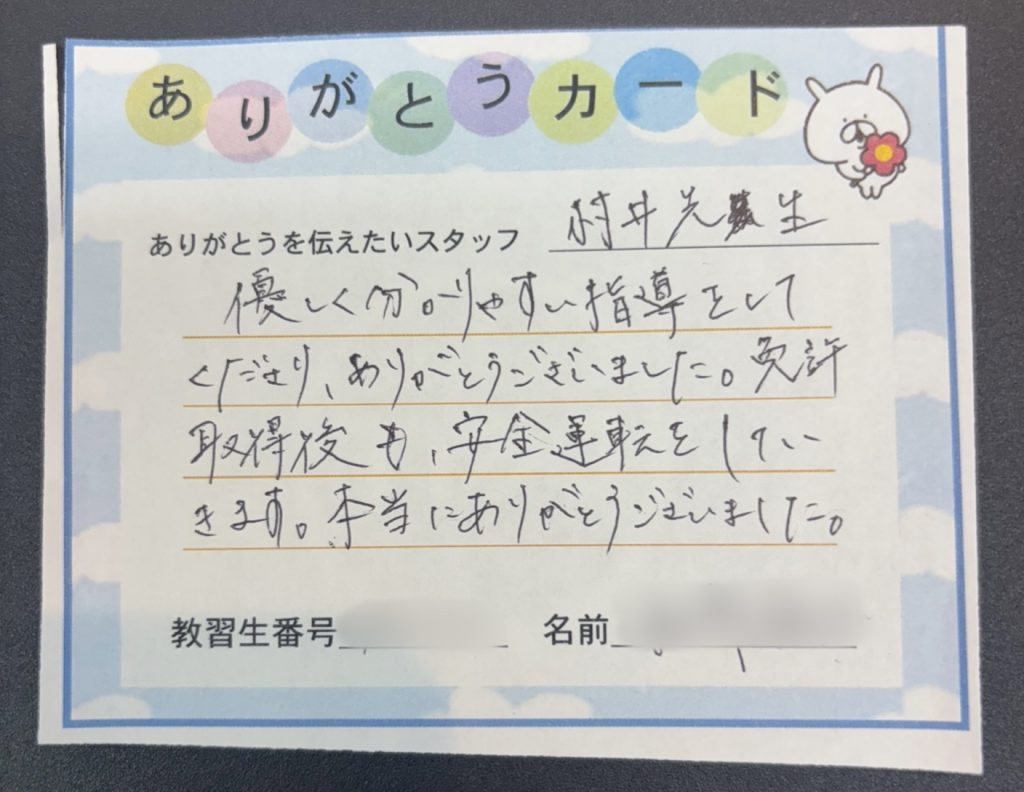 ありがとうカード
ありがとうを伝えたいスタッフ 村井先生
優しく分かりやすい指導をして
くださり、ありがとうございました。免許
取得後も、安全運転をしてい
きます。本当にありがとうございました。
教習生番号 名前